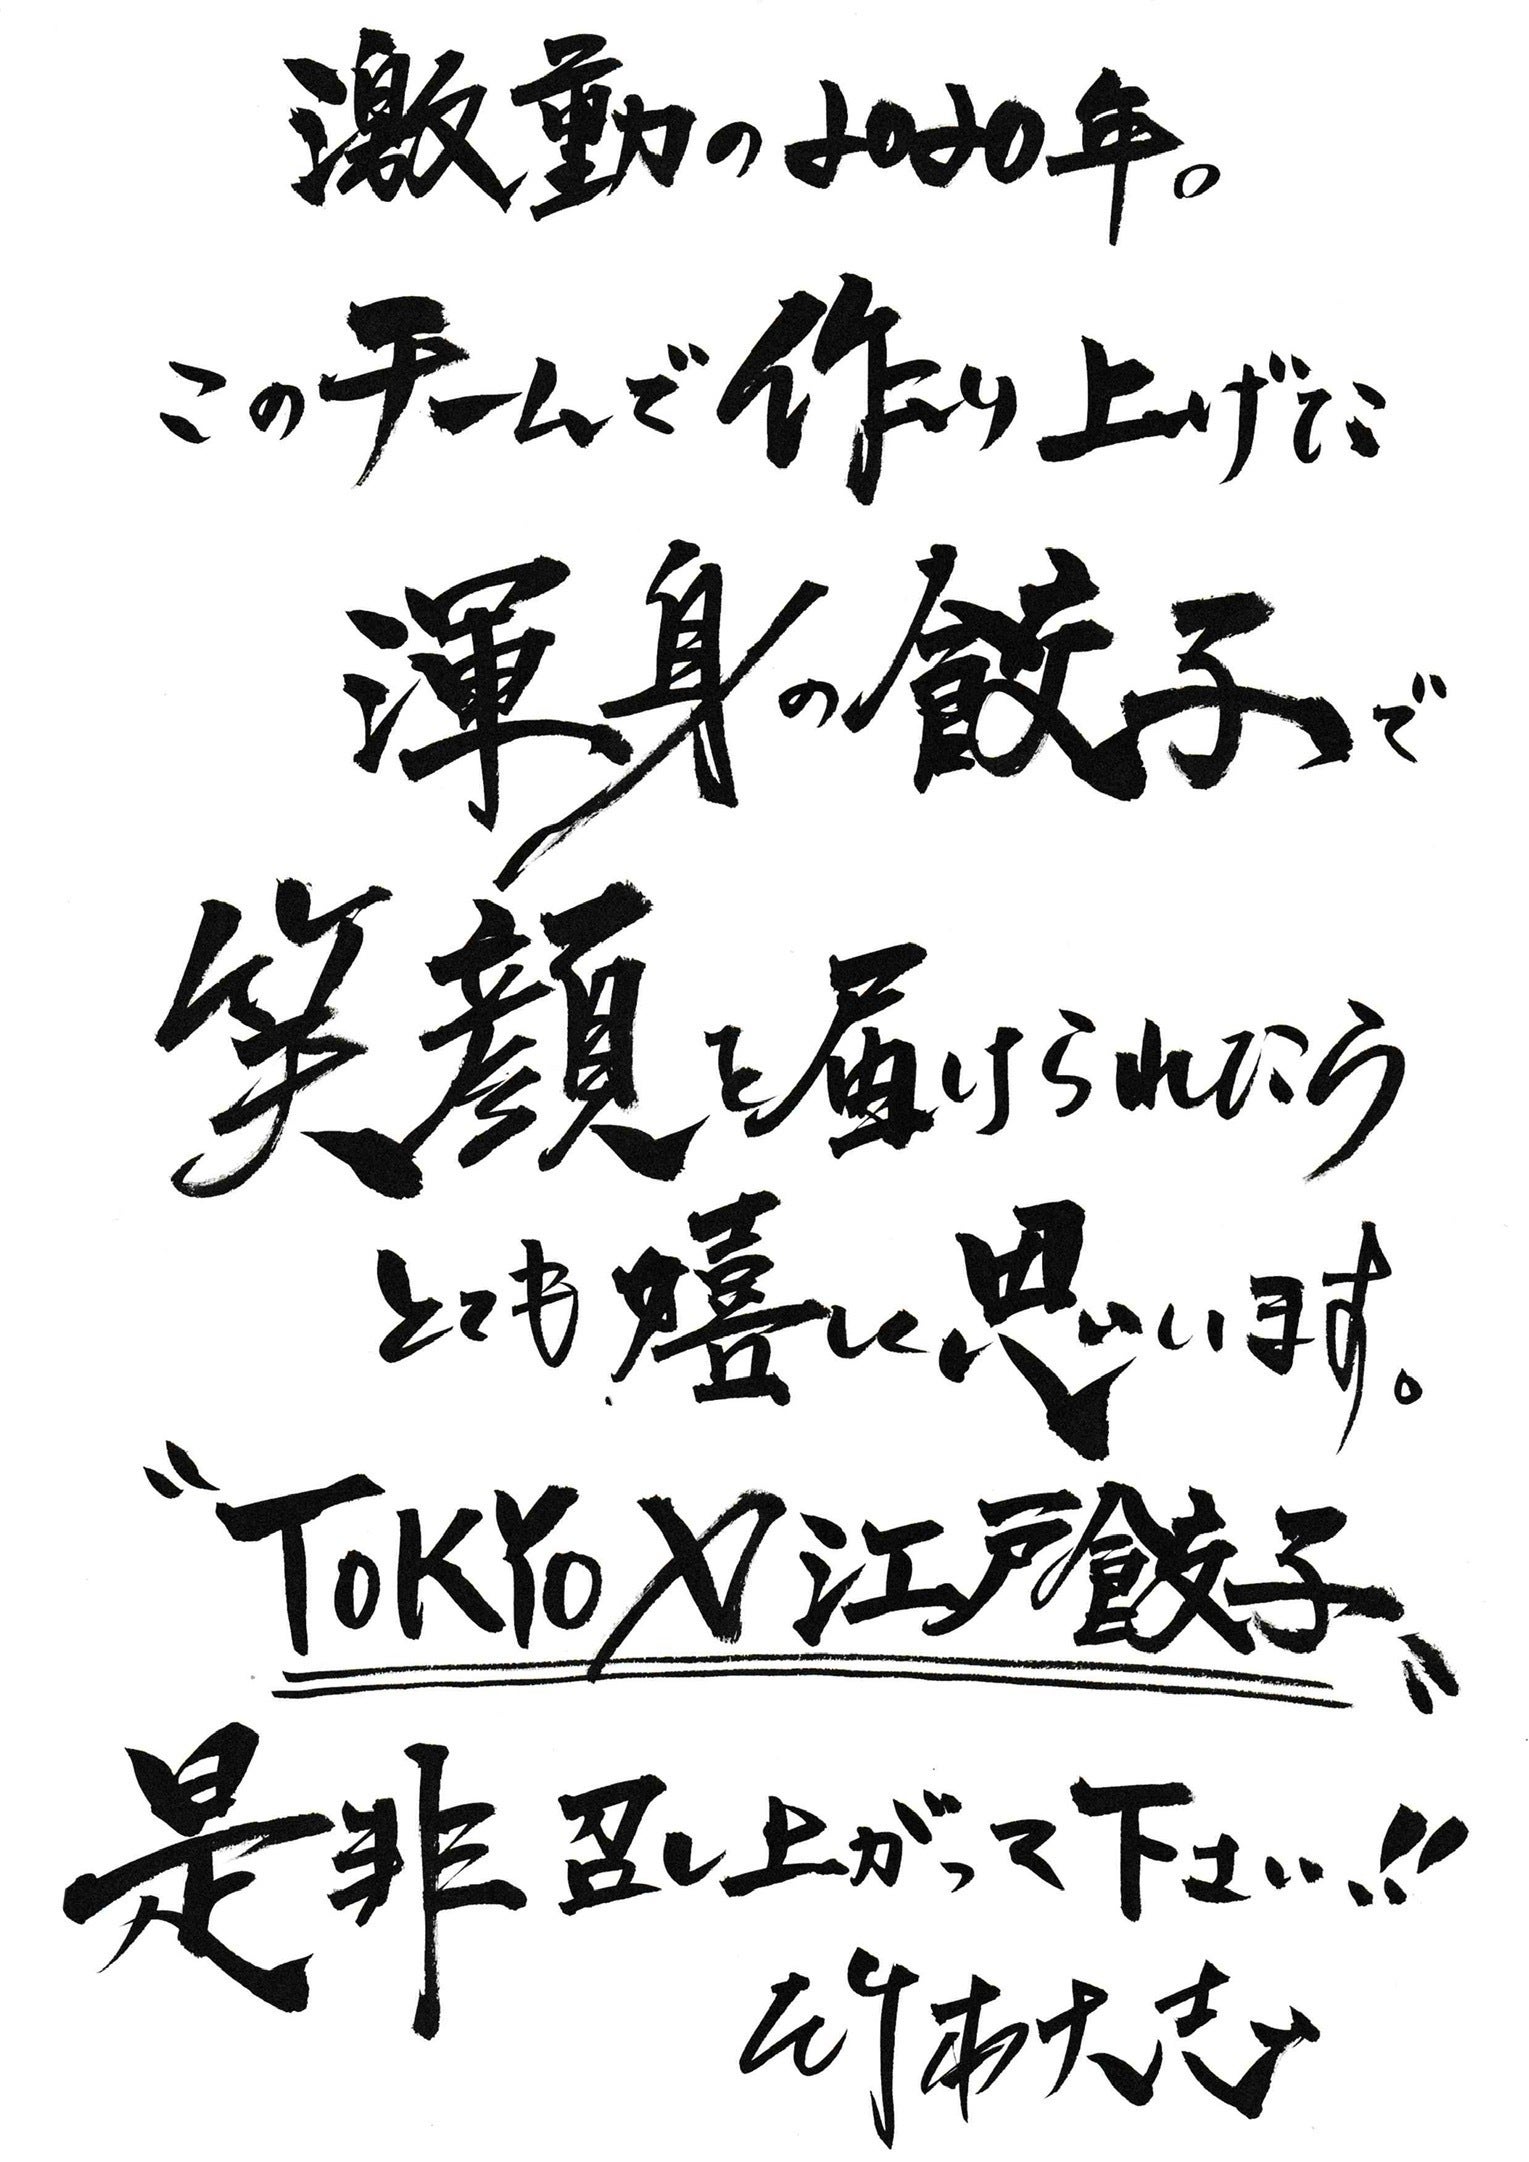 激動の2020年。
このチームで作り上げた
渾身の餃子で
笑顔を届けられたらう
とても嬉しく思います。
"TOKYO X 江戸餃子"
是非召し上がって下さい!!
竹本大志